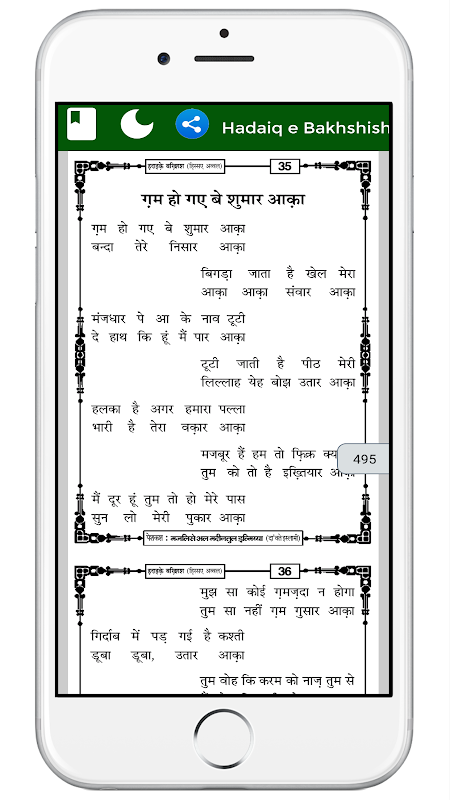 Hadaiq e Bakhshish
हदाइक़े बख़्शिश (हिस्सए अव्वल) 35
ग़म हो गए बे शुमार आक़ा
ग़म हो गए बे शुमार आक़ा
बन्दा तेरे निसार आक़ा
बिगड़ा जाता है खेल मेरा
आक़ा आक़ा संवार आक़ा
मंजधार पे आ के नाव टूटी
दे हाथ कि हूं मैं पार आक़ा
टूटी जाती है पीठ मेरी
लिल्लाह येह बोझ उतार आक़ा
हलका है अगर हमारा पल्ला
भारी है तेरा वक़ार आक़ा
मजबूर हैं हम तो फ़िक्र
495
तुम को तो है इख़्तियार
मैं दूर हूं तुम तो हो मेरे पास
सुन लो मेरी पुकार आक़ा
पेशकश : मजलिसे अल मदीनतुल इल्मिय्या (दा'वते इस्लामी)
हदाइक़े बख़्शिश (हिस्सए अव्वल) 36
मुझ सा कोई ग़मज़दा न होगा
तुम सा नहीं ग़म गुसार आक़ा
गिर्दाब में पड़ गई है कश्ती
डूबा डूबा, उतार आक़ा
तुम वोह कि करम को नाज़ तुम से